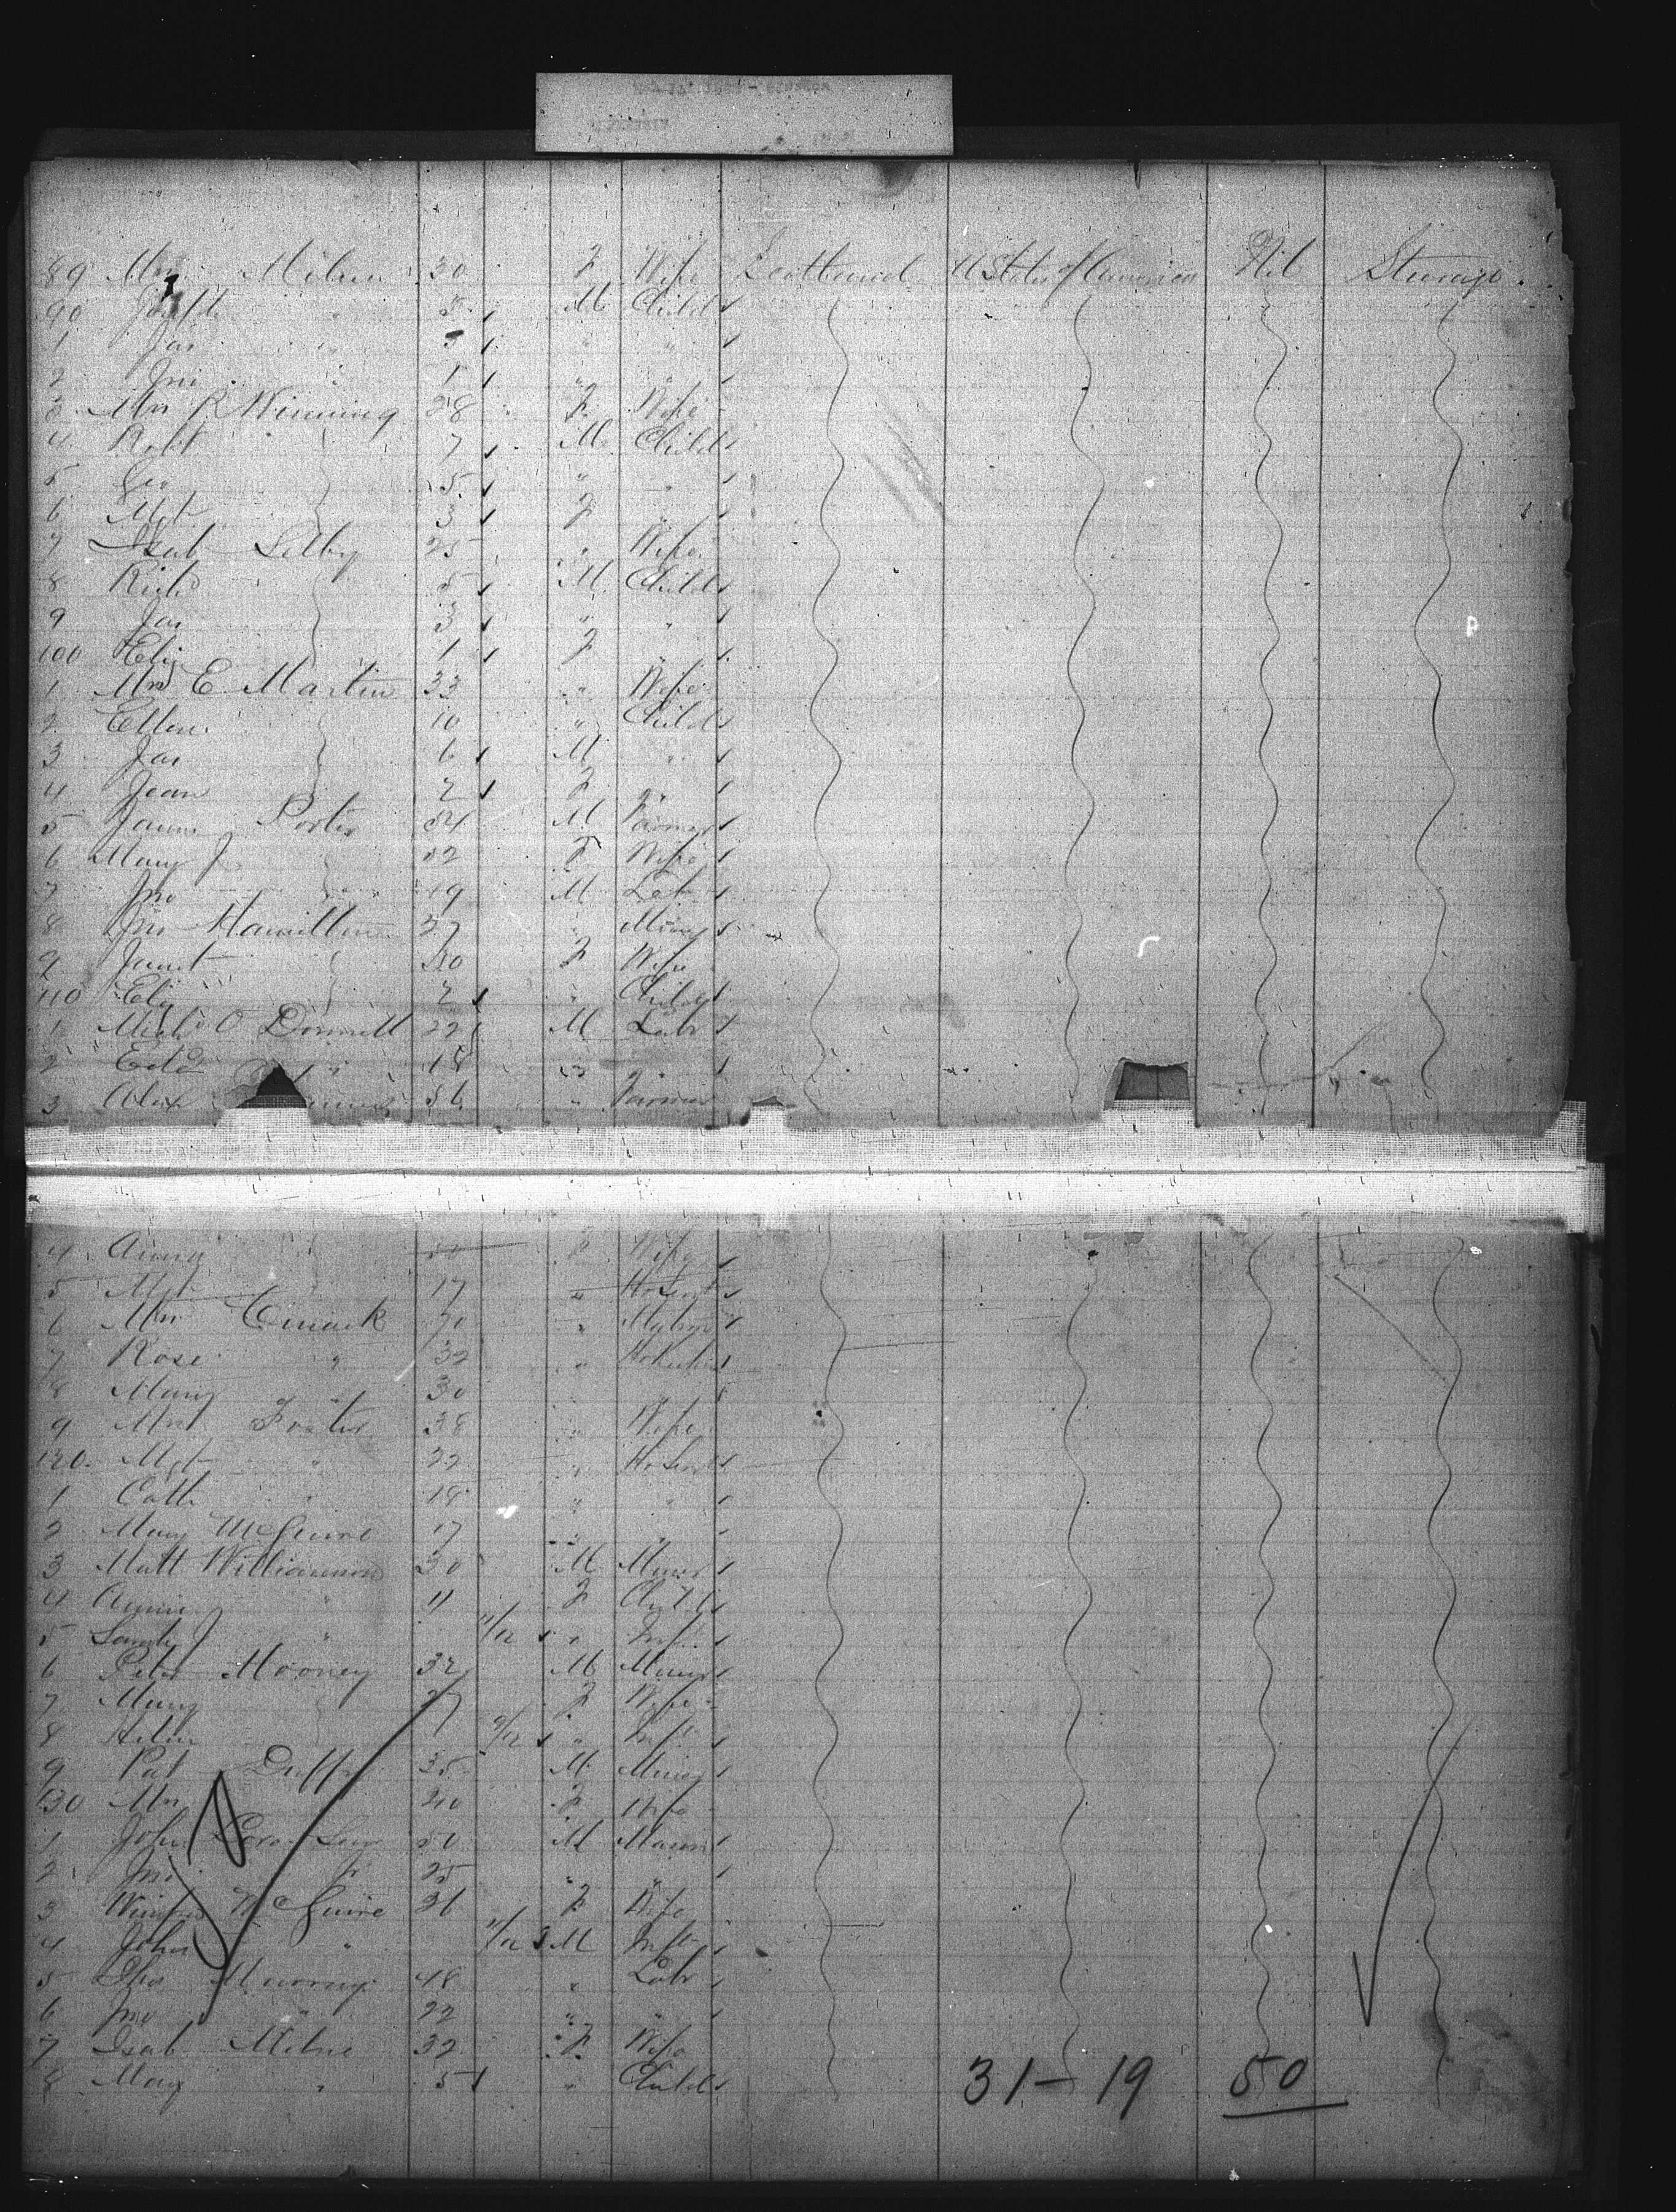 89 Mrs Milne 30 F Wife Scotland U States of America Nil Steerage
90 " 8 M Child
1 Jas " 5 " "
2 Jno " 1 " "
3 Mrs R Winning 28 F Wife
4 Robt 7 M Child
5 Geo 5 " "
6 Mgt 3 F "
7 Isab Selby 25 " Wife
8 Richd 5 M Child
9 Jas 3 " "
100 Eliz 1 F "
1 Mrs E Martin 33 " Wife
2 Ellen 10 " Child
3 Jas 6 M "
4 Jean 2 F "
5 James Porter 54 M Farmer
6 Mary J 52 F Wife
7 Jno " 19 M Labr
8 Jno Hamilton 27 " Miner
9 Janet 20 F Wife
110 Eliz 2 " Child
1 Michl O Donnell 22 M Labr
2 Edd " 18 " "
3 Alex 56 " Farmer
4 Anna F Wife
5 Mgt 17 " Ho Servt
6 Mrs 70 "
7 Rose " 32 "
8 Mary " 30
9 Mrs Foster 38 " Wife
120 Mgt " 22 " Ho Servt
1 Cath " 18 " "
2 Mary McGuire 17 " "
3 Matt Williamson 30 M Miner
4 Annie " 4 F Child
5 J " 11/12 " Inft
6 Peter Mooney 32 M Miner
7 Mary 27 F Wife
8 Helen 9/12 " Inft
9 Pat Duffy 35 M Miner
130 Mrs 20 F Wife
1 John Senr 50 M Mason
2 Jno Jr 25 " "
3 Winifred McGuire 26 F Wife
4 John " 11/12 M Inft
5 Thos Murray 48 " Labr
6 Jno " 22 " "
7 Isab Milne 32 F Wife
8 Mary " 5 " Child
31 – 19 50